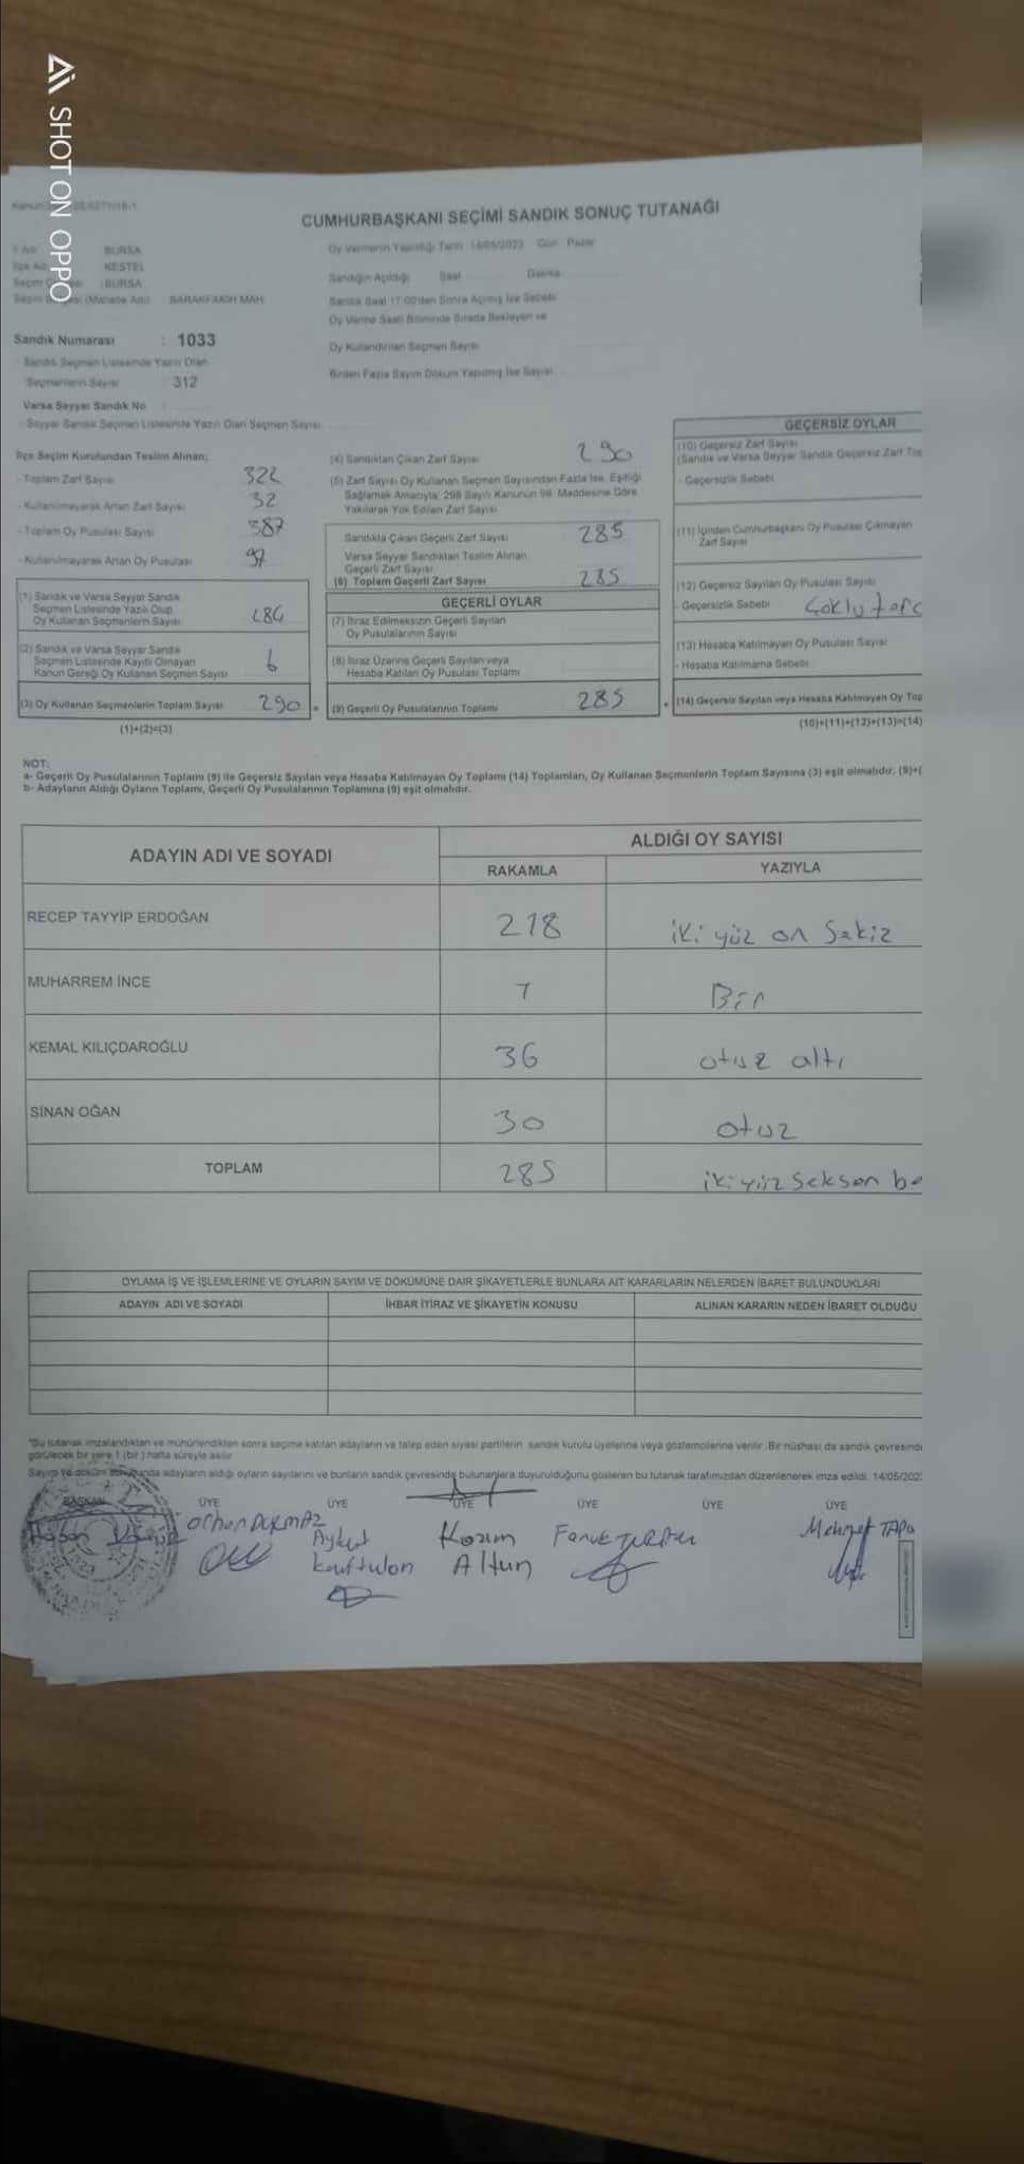 SHOT ON OPPO
CUMHURBAŞKANI SEÇİMİ SANDIK SONUÇ TUTANAĞI
BURSA
KESTEL
BURSA
BARAKFAKİH MAH.
Oy Vermenin Yapıldığı Tarih 14/05/2023 Gün Pazar
Sandığın Açıldığı Saat Dakika
Sandık Saat 17:00'den Sonra Açılmış İse Sebebi
Oy Verme Saati Bitiminde Sırada Bekleyen ve
Oy Kullandırılan Seçmen Sayısı
Birden Fazla Sayım Döküm Yapılmış İse Sayısı
Sandık Numarası : 1033
Sandık Seçmen Listesinde Yazılı Olan
Seçmenlerin Sayısı 312
Varsa Seyyar Sandık No
Seyyar Sandık Seçmen Listesinde Yazılı Olan Seçmen Sayısı
İlçe Seçim Kurulundan Teslim Alınan;
- Toplam Zarf Sayısı 322
- Kullanılmayarak Artan Zarf Sayısı 32
- Toplam Oy Pusulası Sayısı 387
- Kullanılmayarak Artan Oy Pusulası 97
(1) Sandık ve Varsa Seyyar Sandık
Seçmen Listesinde Yazılı Olup
Oy Kullanan Seçmenlerin Sayısı
(2) Sandık ve Varsa Seyyar Sandık
Seçmen Listesinde Kayıtlı Olmayan
Kanun Gereği Oy Kullanan Seçmen Sayısı 6
(3) Oy Kullanan Seçmenlerin Toplam Sayısı 290
(1)+(2)=(3)
(4) Sandıktan Çıkan Zarf Sayısı 290
(5) Zarf Sayısı Oy Kullanan Seçmen Sayısından Fazla İse, Eşitliği
Sağlamak Amacıyla, 298 Sayılı Kanunun 98. Maddesine Göre
Yakılarak Yok Edilen Zarf Sayısı
Sandıkta Çıkan Geçerli Zarf Sayısı 285
Varsa Seyyar Sandıktan Teslim Alınan
Geçerli Zarf Sayısı
(6) Toplam Geçerli Zarf Sayısı 285
GEÇERLİ OYLAR
(7) İtiraz Edilmeksizin Geçerli Sayılan
Oy Pusulalarının Sayısı
(8) İtiraz Üzerine Geçerli Sayılan veya
Hesaba Katılan Oy Pusulası Toplamı
(9) Geçerli Oy Pusulalarının Toplamı 285
GEÇERSİZ OYLAR
(10) Geçersiz Zarf Sayısı
(Sandık ve Varsa Seyyar Sandık Geçersiz Zarf Top
- Geçersizlik Sebebi
(11) İçinden Cumhurbaşkanı Oy Pusulası Çıkmayan
Zarf Sayısı
(12) Geçersiz Sayılan Oy Pusulası Sayısı
- Geçersizlik Sebebi Çoklu terc
(13) Hesaba Katılmayan Oy Pusulası Sayısı
- Hesaba Katılmama Sebebi
(14) Geçersiz Sayılan veya Hesaba Katılmayan Oy Top
(10)+(11)+(12)+(13)=(14)
NOT:
a- Geçerli Oy Pusulalarının Toplamı (9) ile Geçersiz Sayılan veya Hesaba Katılmayan Oy Toplamı (14) Toplamları, Oy Kullanan Seçmenlerin Toplam Sayısına (3) eşit olmalıdır. (9)+(
b- Adayların Aldığı Oyların Toplamı, Geçerli Oy Pusulalarının Toplamına (9) eşit olmalıdır.
ADAYIN ADI VE SOYADI
ALDIĞI OY SAYISI
RAKAMLA YAZIYLA
RECEP TAYYİP ERDOĞAN 218 iki yüz on Sekiz
MUHARREM İNCE 1 Bir
KEMAL KILIÇDAROĞLU 36 otuz altı
SİNAN OĞAN 30 otuz
TOPLAM 285 iki yüz Seksen be
OYLAMA İŞ VE İŞLEMLERİNE VE OYLARIN SAYIM VE DÖKÜMÜNE DAİR ŞİKAYETLERLE BUNLARA AİT KARARLARIN NELERDEN İBARET BULUNDUKLARI
ADAYIN ADI VE SOYADI İHBAR İTİRAZ VE ŞİKAYETİN KONUSU ALINAN KARARIN NEDEN İBARET OLDUĞU
*Bu tutanak imzalandıktan ve mühürlendikten sonra seçime katılan adayların ve talep eden siyasi partilerin sandık kurulu üyelerine veya gözlemcilerine verilir. Bir nüshası da sandık çevresinde
görülecek bir yere 1 (bir) hafta süreyle asılır
Sayım ve döküm sonucunda adayların aldığı oyların sayılarını ve bunların sandık çevresinde bulunanlara duyurulduğunu gösteren bu tutanak tarafımızdan düzenlenerek imza edildi. 14/05/202
BAŞKAN ÜYE ÜYE ÜYE ÜYE ÜYE ÜYE
Orhan
Aykut
Kazım
Altun
Faruk
Mehmet